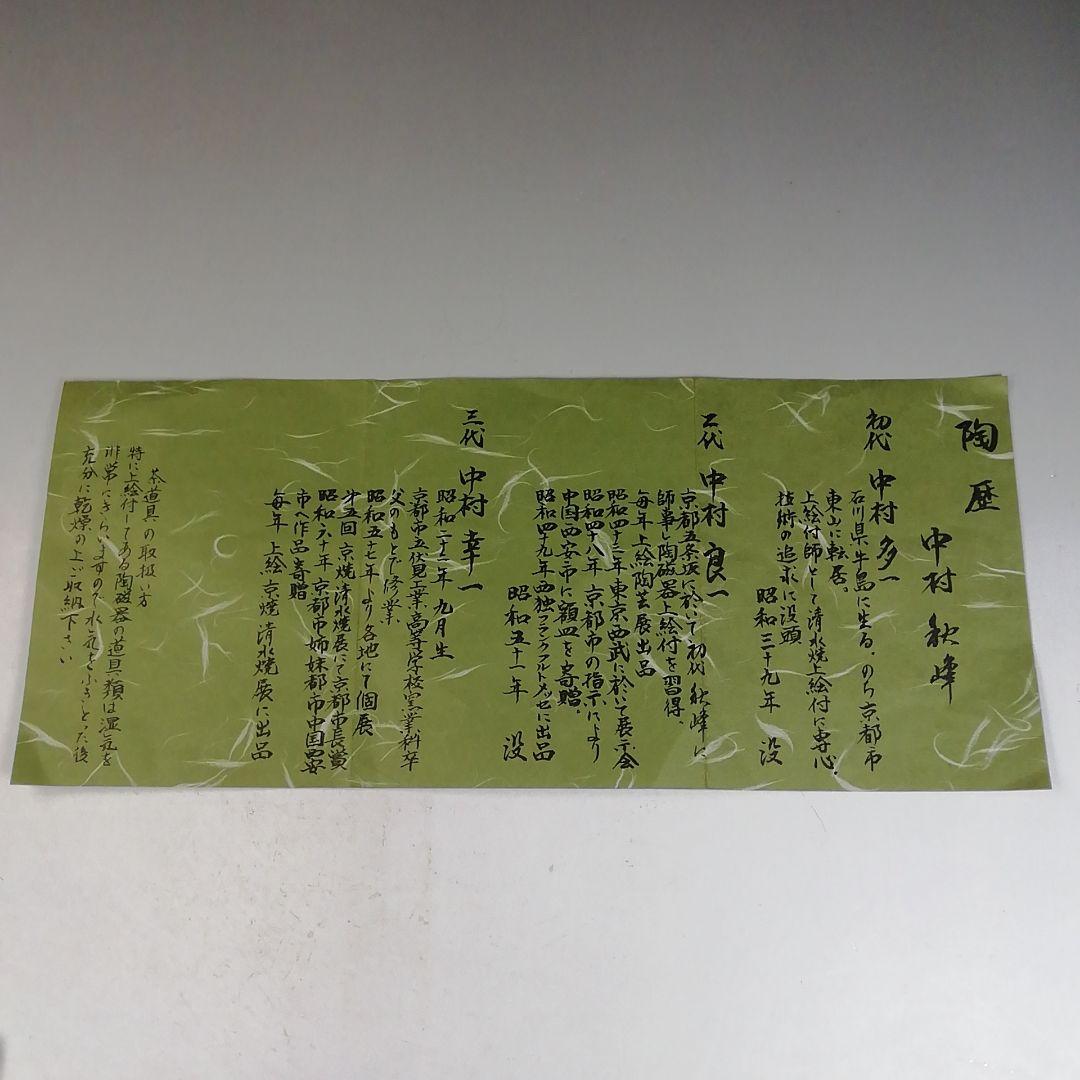 陶歴
中村秋峰
初代 中村多一
石川県牛島に生る。のち京都市
東山に転居。
上絵付師として清水焼上絵付に専心。
技術の追求に没頭
昭和三十九年 没
二代 中村良一
京都五条坂に於いて初代秋峰に
師事し陶磁器上絵付を習得
毎年上絵陶芸展出品
昭和四十二年東京西武に於いて展示会
昭和四十八年京都市の指示により
中国西安市に額皿を寄贈。
昭和四十九年西独フランクフルトメッセに出品
昭和五十一年 没
三代 中村幸一
昭和二十二年九月生
京都市立伏見工業高等学校窯業科卒
父のもとで修業
昭和五十七年より各地にて個展
第五回京焼清水焼展にて京都市長賞
昭和六十年京都市姉妹都市中国西安
市へ作品寄贈
毎年上絵京焼清水焼展に出品
茶道具の取扱い方
特に上絵付してある陶磁器の道具類は湿気を
非常にきらいますので水気をふきとった後
充分に乾燥の上ご収納下さい